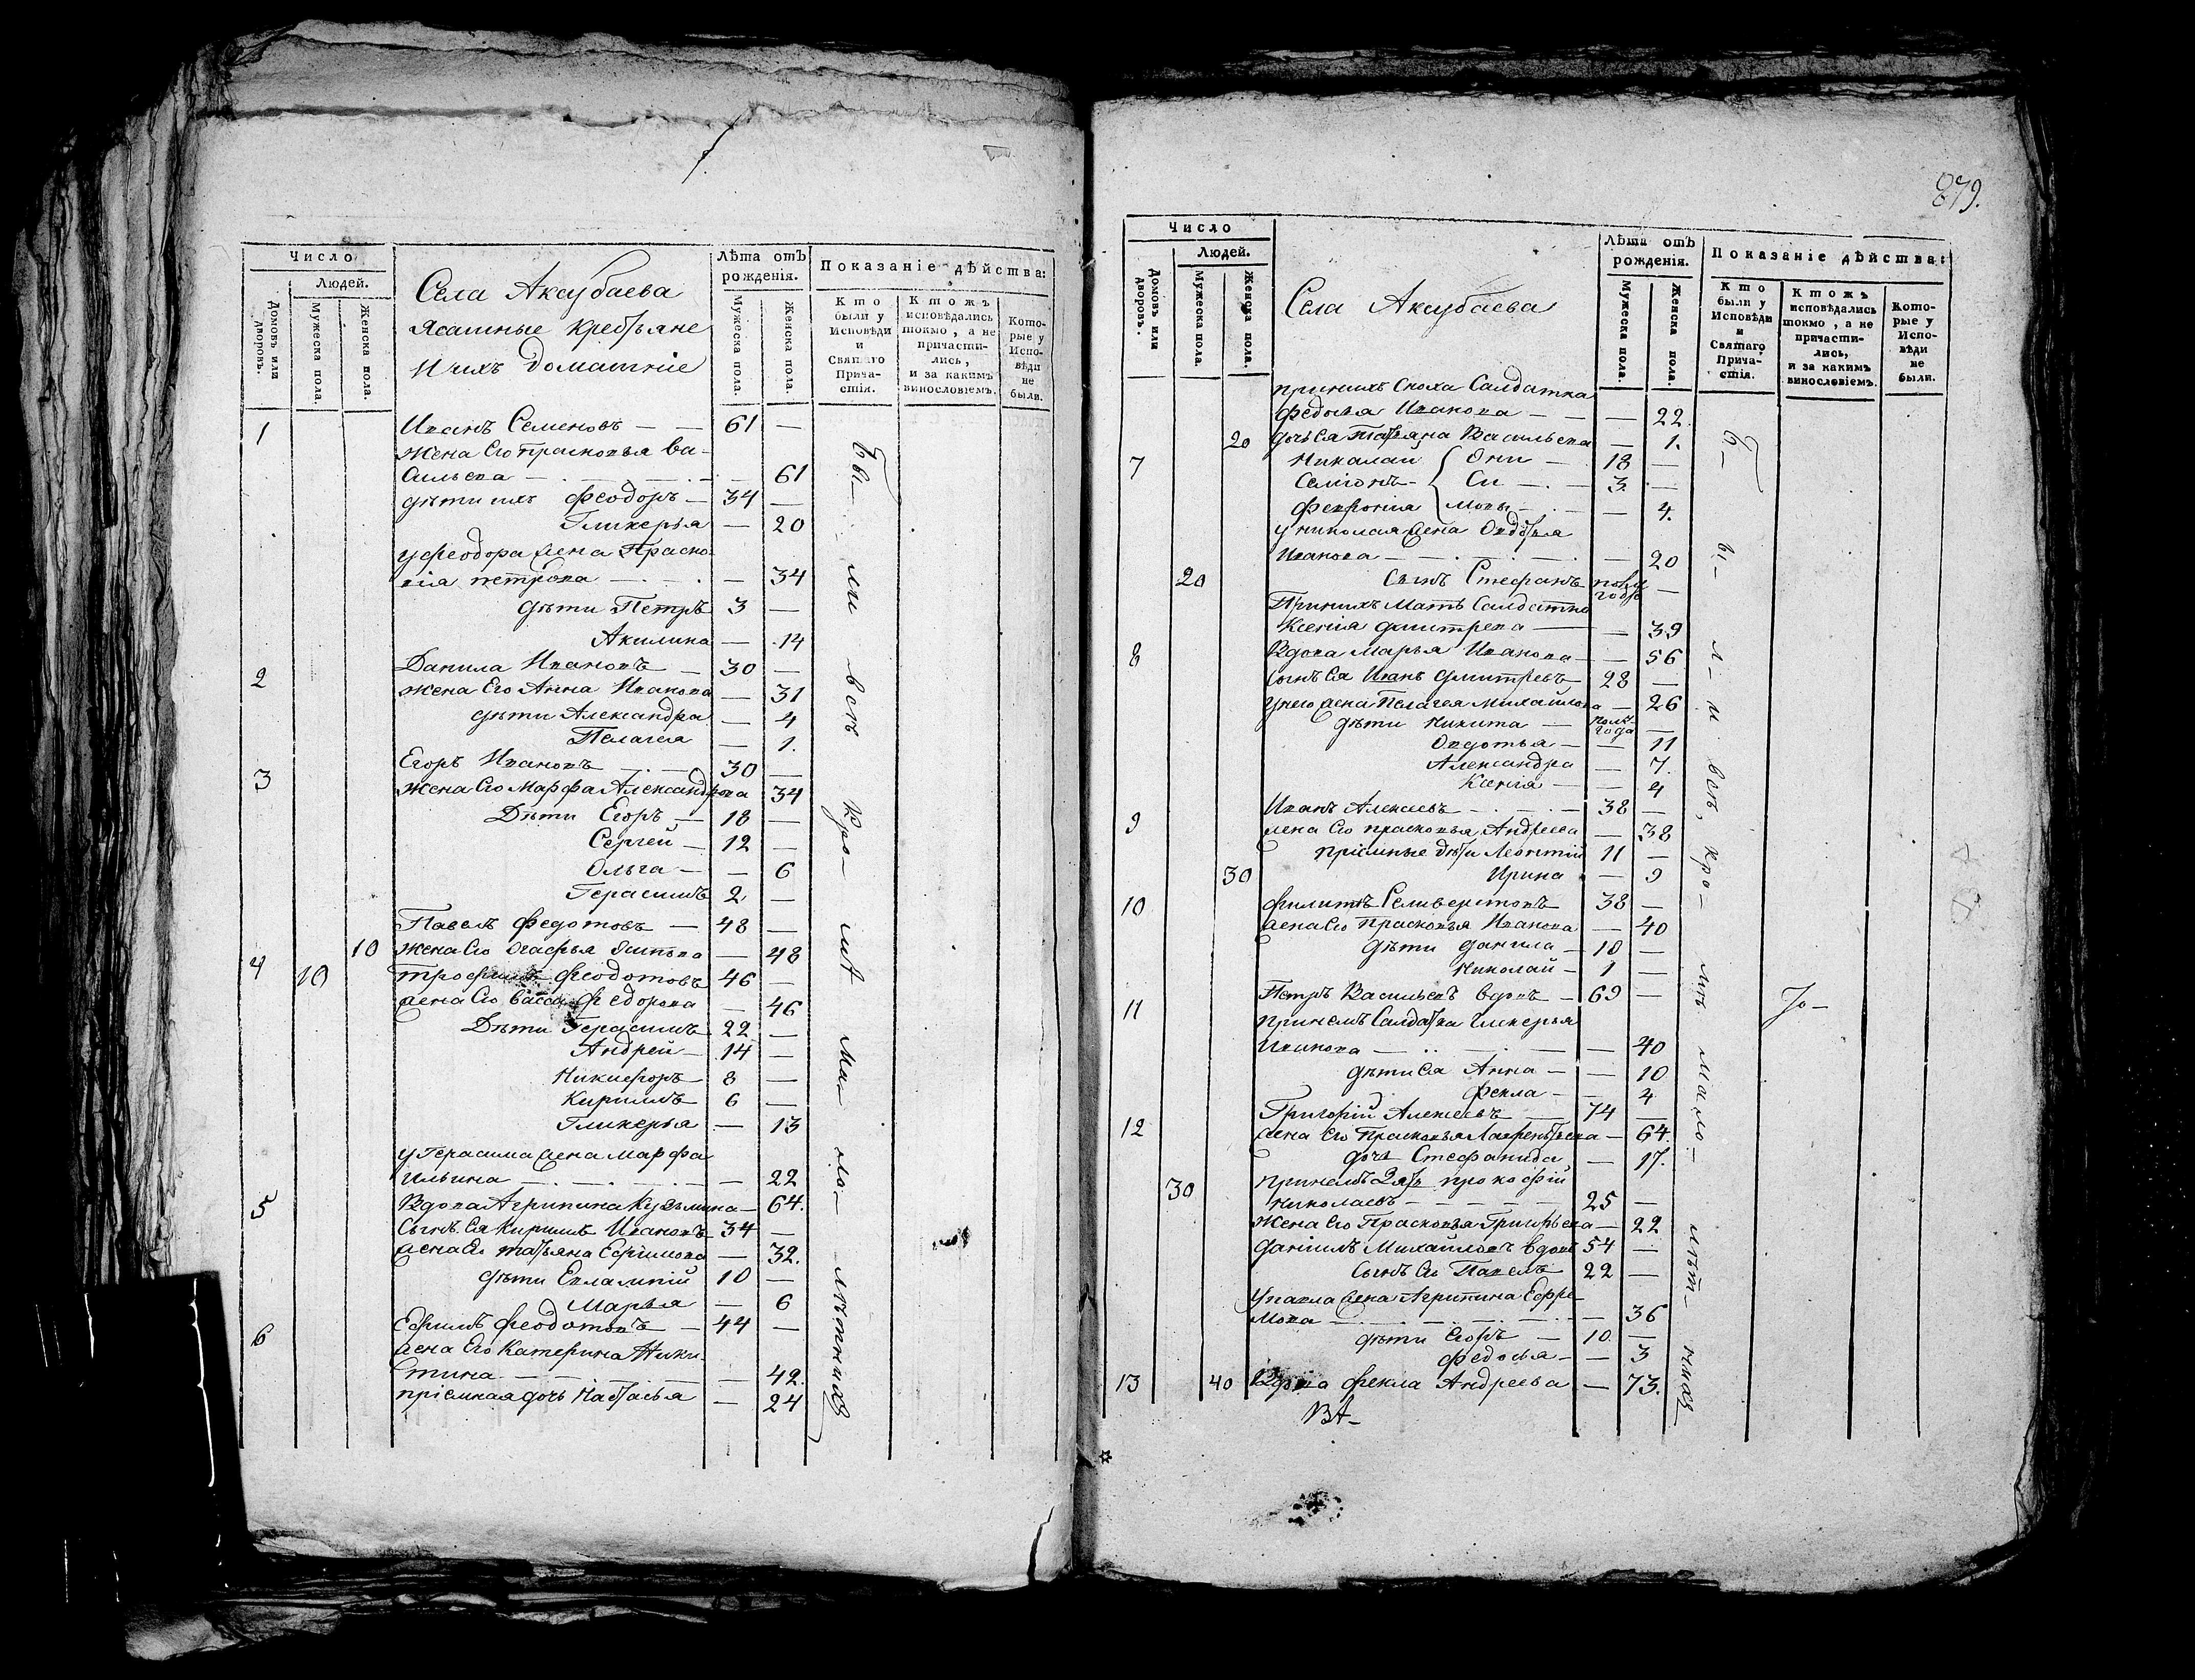 Число
Людей.
Домовъ или дворовъ.
Мужеска пола.
Женска пола.
Села Аксубаева
Ясашные крестьяне
И ихъ домашніе
Лѣта отъ рожденія.
Мужеска пола.
Женска пола.
Показаніе дѣйства:
Кто были у Исповѣди и Святаго Причастія.
Ктожъ исповѣдались токмо, а не причастились, и за какимъ винословіемъ.
Которые у Исповѣди не были.
1 Иванъ Семеновъ — — 61 —
Жена Его Прасковья Ва-
сильева — — 61
дѣти ихъ Феодоръ — 34 —
Гликерья — 20
у Феодора жена Праско-
вія Петрова — — 34
дѣти Петръ 3 —
Акилина — 14
2 Данила Ивановъ — 30 —
Жена Его Анна Иванова — 31
дѣти Александра — 4
Пелагея — 1.
3 Егоръ Ивановъ — 30 —
Жена Его Марфа Александрова 34
Дѣти Егоръ — 18 —
Сергей — 12 —
Ольга — — 6
Герасимъ 2 —
Павелъ Федотовъ — 48 —
10 Жена Его Агафья — 48
4 10 Трофимъ Феодотовъ 46 —
жена Его Васса Федорова — 46
Дѣти Герасимъ 22 —
Андрей — 14 —
Никифоръ — 8 —
Кириллъ 6 —
Гликерья — 13
у Герасима жена Марфа
Ильина — — 22
5 Вдова Агрипина Кузьмина — 64.
Сынъ Ея Кириллъ Ивановъ 34 —
жена Его Татьяна Ефимова — 32.
дѣти Евлампій 10 —
Марья — 6
6 Ефимъ Феодотовъ — 44 —
жена Его Катерина Ники-
тина — — 42.
пріемная дочь Настасья — 24
Бы- ли всѣ кро- мѣ ма ло- лѣтнихъ
879.
Число
Людей.
Домовъ или дворовъ.
Мужеска пола.
Женска пола.
Села Аксубаева
Лѣта отъ рожденія.
Мужеска пола.
Женска пола.
Показаніе дѣйства:
Кто были у Исповѣди и Святаго Причастія.
Ктожъ исповѣдались токмо, а не причастились, и за какимъ винословіемъ.
Которые у Исповѣди не были.
принихъ сноха Салдатка
Федосья Иванова — — 22
20 дочь Ея Татьяна Васильева — 1.
7 Николай { Они — 18 —
Семіонъ — { Си — 3 —
Февронія { Моновы — 4.
у Николая жена Овдотья
Иванова — — 20
20 Сынъ Стефанъ полъ года —
Принихъ Мать Салдатка
Ксенія Дмитрева — — 39
8 Вдова Марья Иванова — — 56
Сынъ Ея Иванъ Дмитревъ — 28 —
у него жена Пелагея Михайлова — 26
дѣти Никита — полъ года —
Овдотья — — 11
Александра — 7.
Ксенія — — 4
9 Иванъ Алексеевъ — 38 —
жена Его Прасковья Андреева — 38
пріемные дѣти Леонтій 11 —
30 Ирина — 9
10 Филипъ Селиверстовъ 38 —
жена Его Прасковья Иванова — 40
дѣти Данила — 10 —
Николай — 1 —
11 Петръ Васильевъ вдовъ — 69 —
принемъ Салдатка Гликерья
Иванова — — 40
дѣти Ея Анна — — 10
Фекла — — 4
12 Григорій Алексеевъ — 74 —
жена Его Прасковья Лаврентьева — 64.
дочь Стефанида — 17.
30 принемъ Зять Прокофій
Николаевъ — 25 —
Жена Его Прасковья Григорьева — 22
Даніилъ Михайловъ вдовъ 54 —
Сынъ Его Павелъ 22 —
у Павла жена Агрипина Ефре-
мова — — 36
дѣти Егоръ — 10 —
Федосья — — 3
13 40 Вдова Фекла Андреева — 73.
Б- ы- л- и всѣ, кро- мѣ мало- лѣт- нихъ